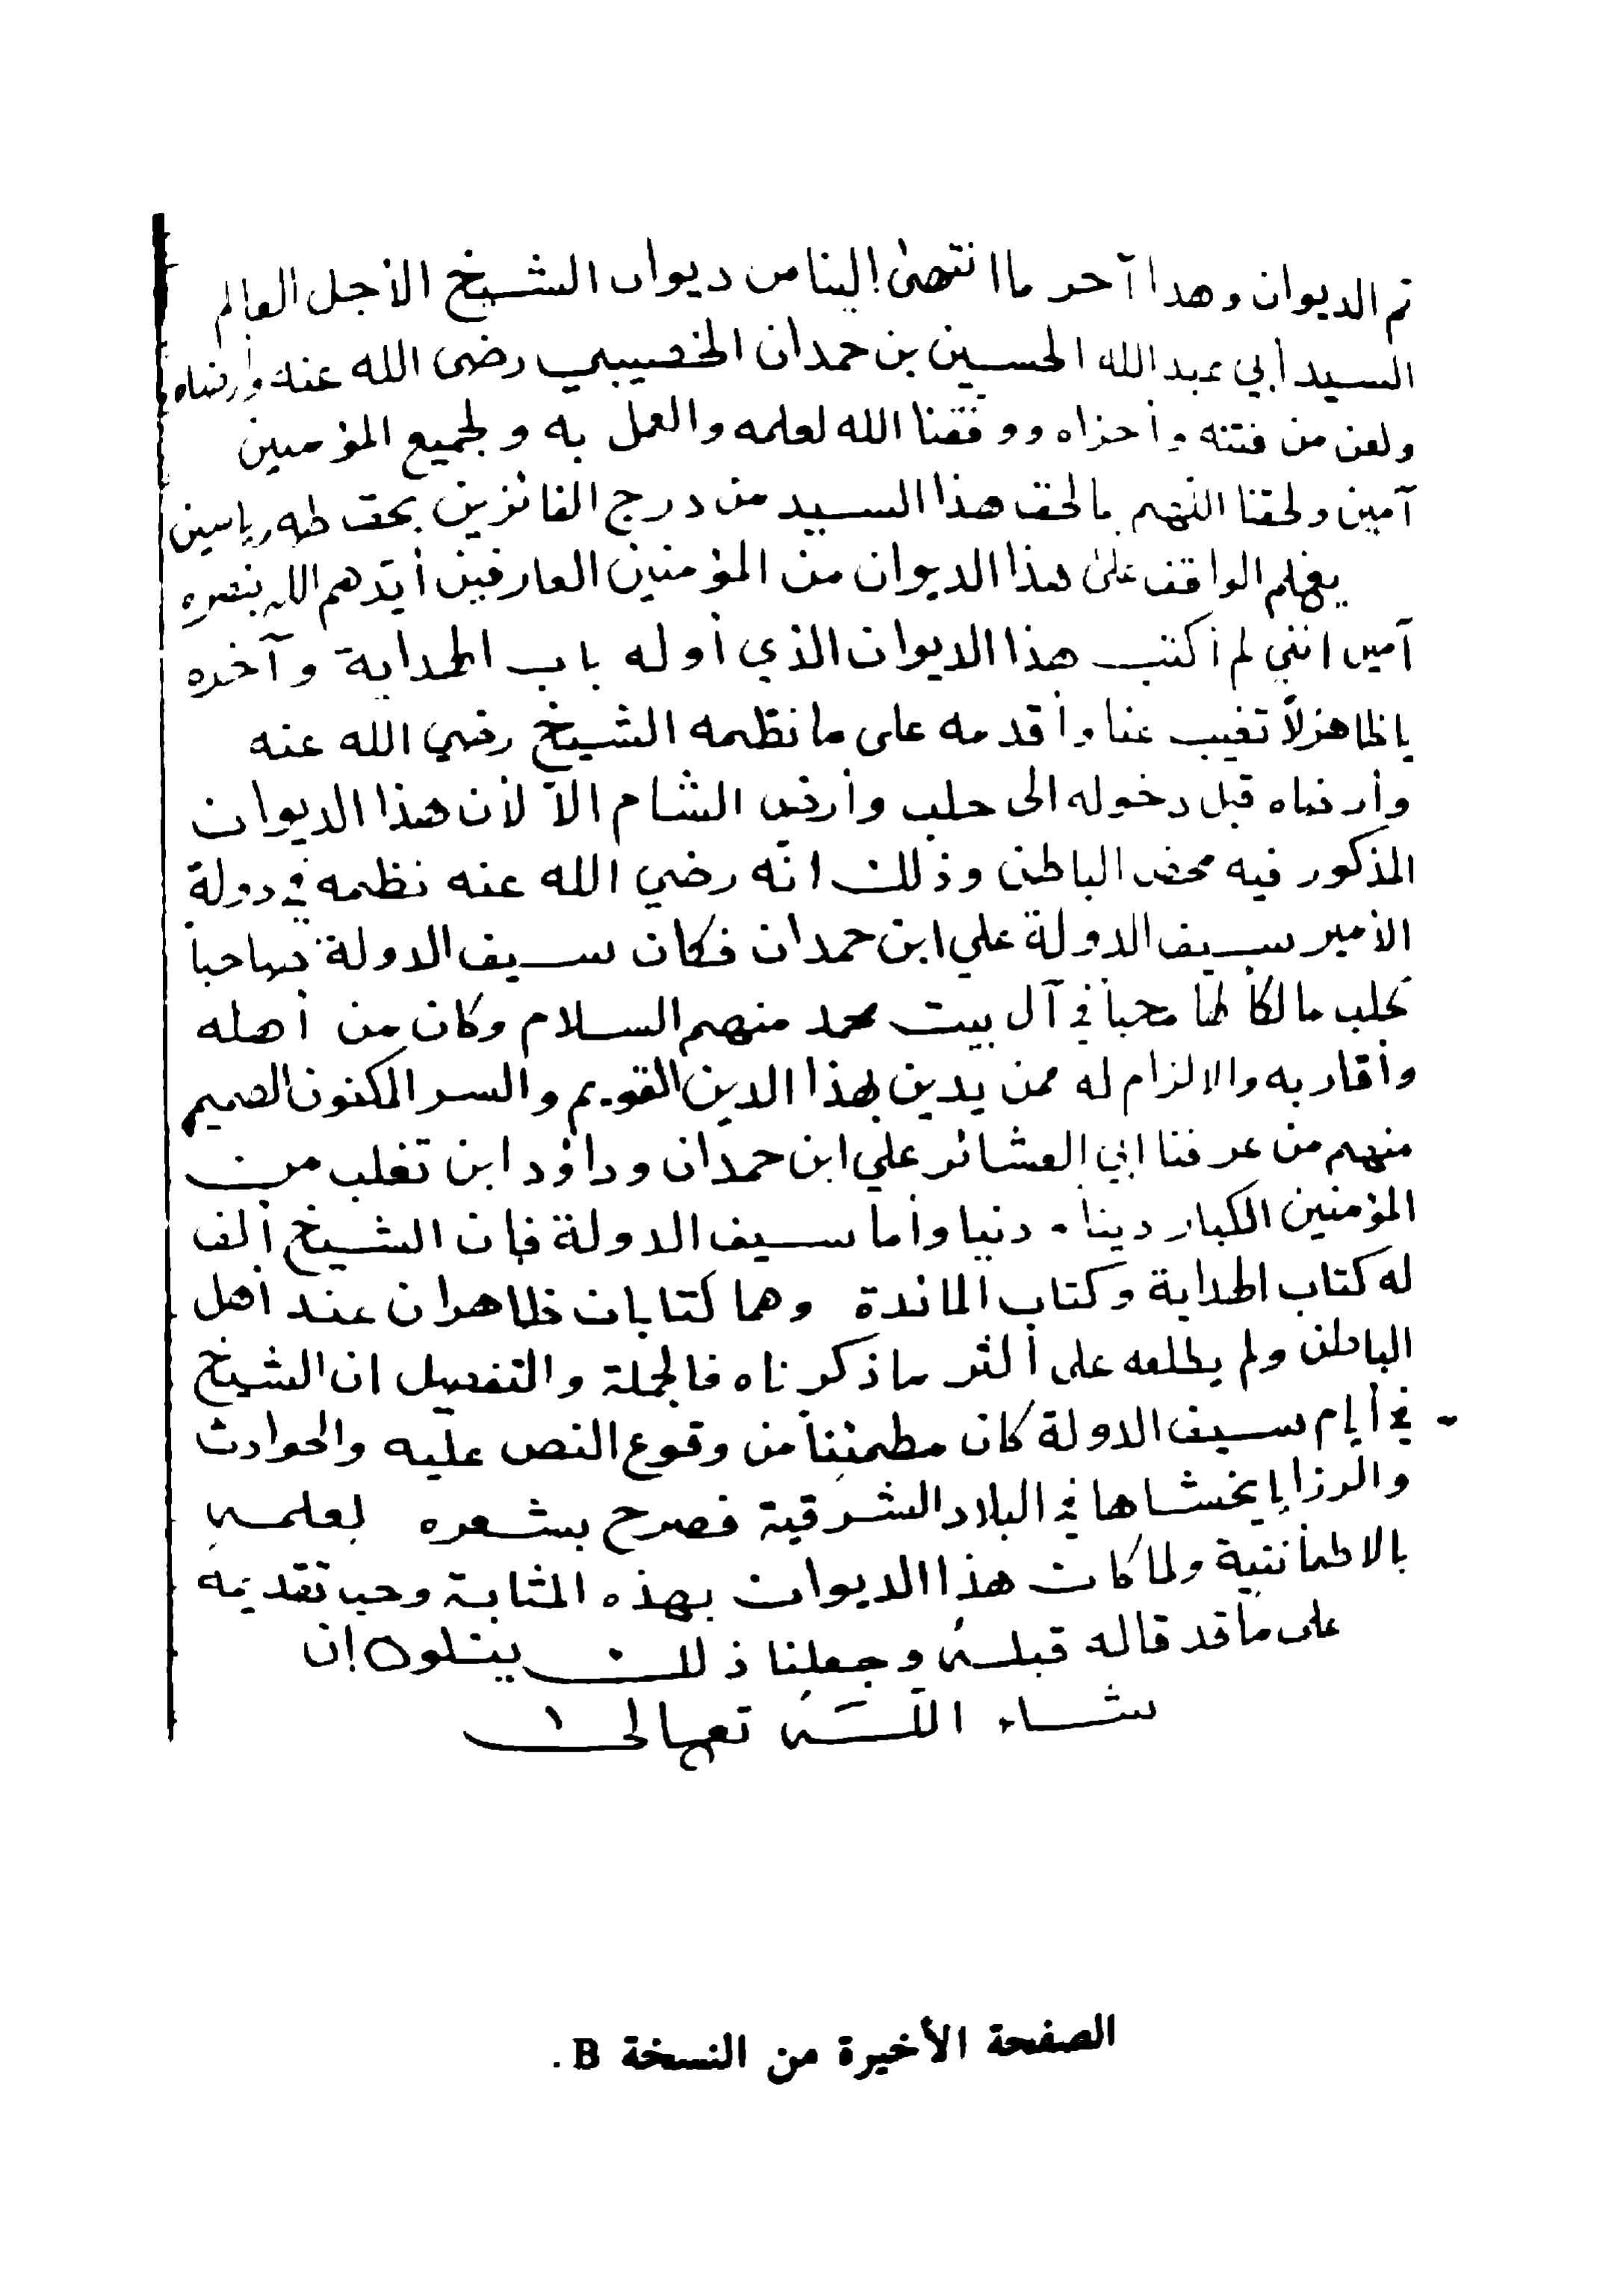 تم الديوان وهذا آخر ما انتهى إلينا من ديوان الشيخ الأجل العالم
السيد أبي عبد الله الحسين بن حمدان الخصيبي رضى الله عنه وأرضاه
ولعن من فتنه وأحزاه ووفقنا الله لعلمه والعمل به ولجميع المؤمنين
آمين ولحقنا اللهم بالحق هذا السيد من درج الفائزين بحق طه وياسين
يعلم الواقف على هذا الديوان من المؤمنين العارفين أيدهم الله بنصره
آمين انني لم أكتب هذا الديوان الذي أوله باب الهداية وآخره
يا ظاهرلاً تغيب عنا وأقدمه على ما نظمه الشيخ رضي الله عنه
وأرضاه قبل دخوله الى حلب وأرض الشام الآ لأن هذا الديوان
المذكور فيه محض الباطن وذلك انّه رضي الله عنه نظمه في دولة
الأمير سيف الدولة علي ابن حمدان فكان سيف الدولة صاحباً
بحلب مالكاً لها محباً في آل بيت محمد منهم السلام وكان من أهله
وأقاربه والالزام له ممن يدين بهذا الدين القويم والسر المكنون الصميم
منهم من عرفنا ابي العشائر علي ابن حمدان وداؤد ابن تغلب من
المؤمنين الكبار ديناً دنيا وأما سيف الدولة فإن الشيخ ألف
له كتاب الهداية وكتاب المائدة وهما كتابان ظاهران عند أهل
الباطن ولم يطلعه على أكثر ما ذكرناه فالجملة والتفصيل ان الشيخ
في أيام سيف الدولة كان مطمئناً من وقوع النص عليه والحوادث
والرزايا يخشاها في البلاد الشرقية فصرح بشعره لعلمه
بالاطمأنتية ولما كان هذا الديوان بهذه المثابة وجب تقديمه
على ما قد قاله قبله وجعلنا ذلك يتلوه إن
شاء الله تعالى
الصفحة الأخيرة من النسخة B.